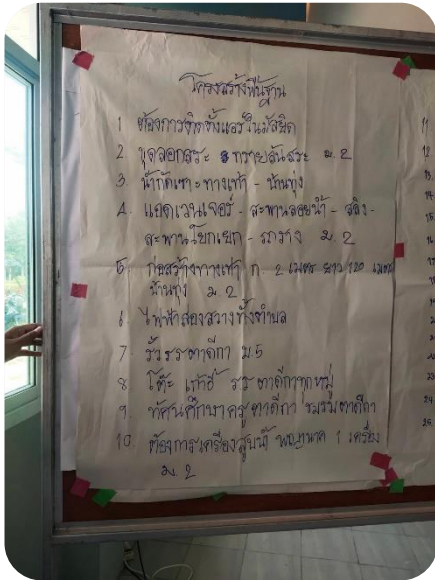 โครงสร้างพื้นฐาน
1 ต้องการติดตั้งแอร์ในมัสยิด
2 ขุดลอกสระ ทรายสันสระ ม.2
3. น้ำกัดเซาะทางเท้า - บ้านทุ่ง
4. แอดเวนเจอร์ - สะพานลอยน้ำ - สลิง -
สะพานโยกเยก - รถราง ม 2
5 ก่อสร้างทางเท้า ก. 2 เมตร ยาว 120 เมตร
บ้านทุ่ง ม 2
6. ไฟฟ้าส่องสว่างทั้งตำบล
7 รั้วรร ตาดีกา ม5
8 โต๊ะ เก้าอี้ รร ตาดีกาทุกหมู่
9. ทัศนศึกษาครูตาดีกา ชมรมตาดีกา
10. ต้องการเครื่องสูบน้ำ พญานาค 1 เครื่อง
ม. 2
11
12
13.
14
15
16
17
22
23
24
25.